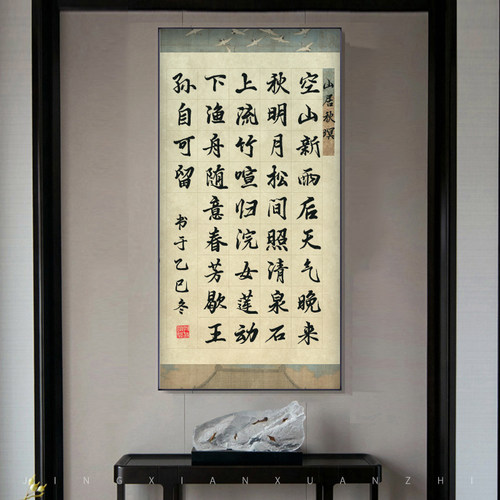 山居秋暝
空山新雨后天气晚来
秋明月松间照清泉石
上流竹喧归浣女莲动
下渔舟随意春芳歇王
孙自可留
书于乙巳冬
JINGXIANXUANZHI